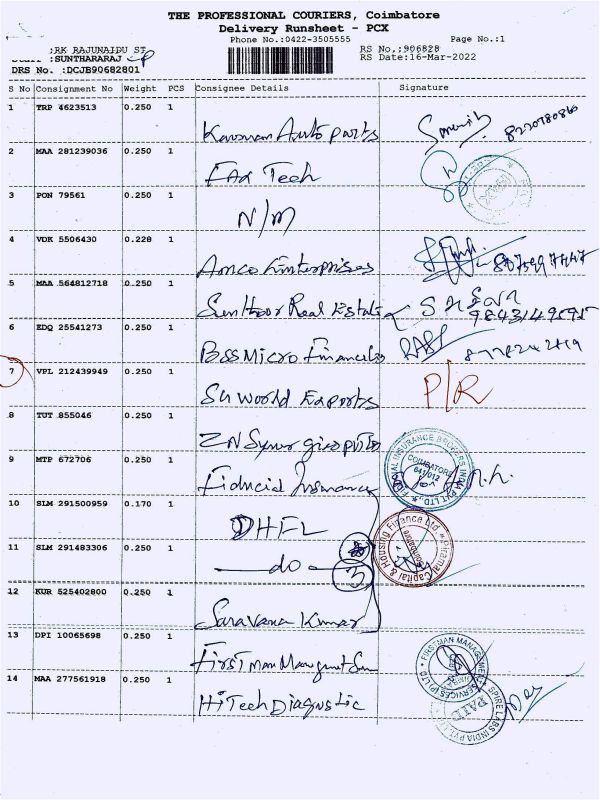 THE PROFESSIONAL COURIERS, Coimbatore
Delivery Runsheet - PCX
Phone No.:0422-3505555 Page No.:1
:RK RAJUNAIDU ST RS No.:906828
:SUNTHARARAJ RS Date:16-Mar-2022
DRS No. :DCJB90682801
S No Consignment No Weight PCS Consignee Details Signature
1 TRP 4623513 0.250 1
Auto parts 8220780860
2 MAA 281239036 0.250 1
Tech
3 PON 79561 0.250 1
N/M
4 VDK 5506430 0.228 1
Amco Enterprises
5 MAA 564812718 0.250 1
Real Estate
6 EDQ 25541273 0.250 1
BSS Micro
7 VPL 212439949 0.250 1
World Exports P/R
8 TUT 855046 0.250 1
9 MTP 672706 0.250 1
INSURANCE BROKERS INDIA PVT LTD.
COIMBATORE
641 012
10 SLM 291500959 0.170 1
DHFL
Piramal Capital & Housing Finance Ltd
Coimbatore
11 SLM 291483306 0.250 1
do
12 KUR 525402800 0.250 1
Saravana Kumar
13 DPI 10065698 0.250 1
First man
FIRSTMAN MANAGEMENT SERVICES (P) LTD
14 MAA 277561918 0.250 1
HiTech Diagnostic
PAID